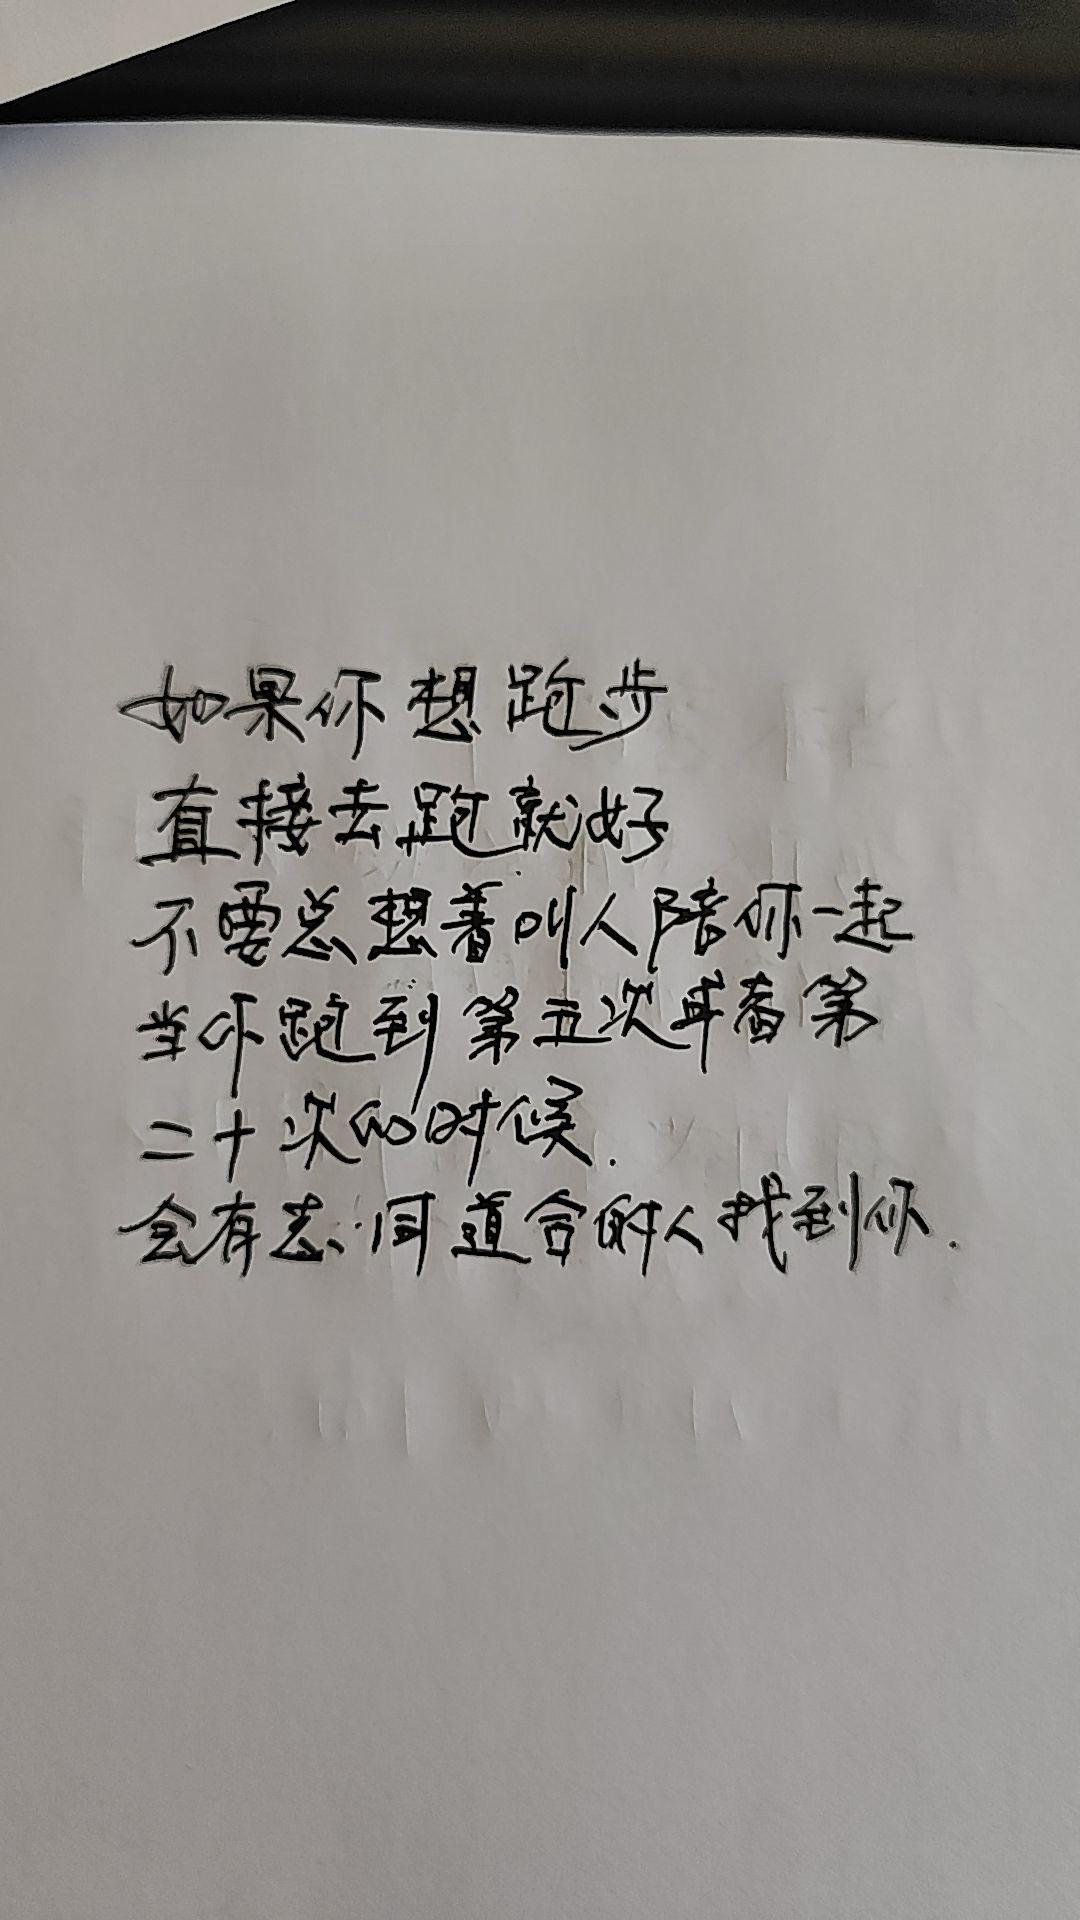 如果你想跑步
直接去跑就好
不要总想着叫人陪你一起
当你跑到第五次或者第
二十次的时候.
会有志同道合的人找到你.